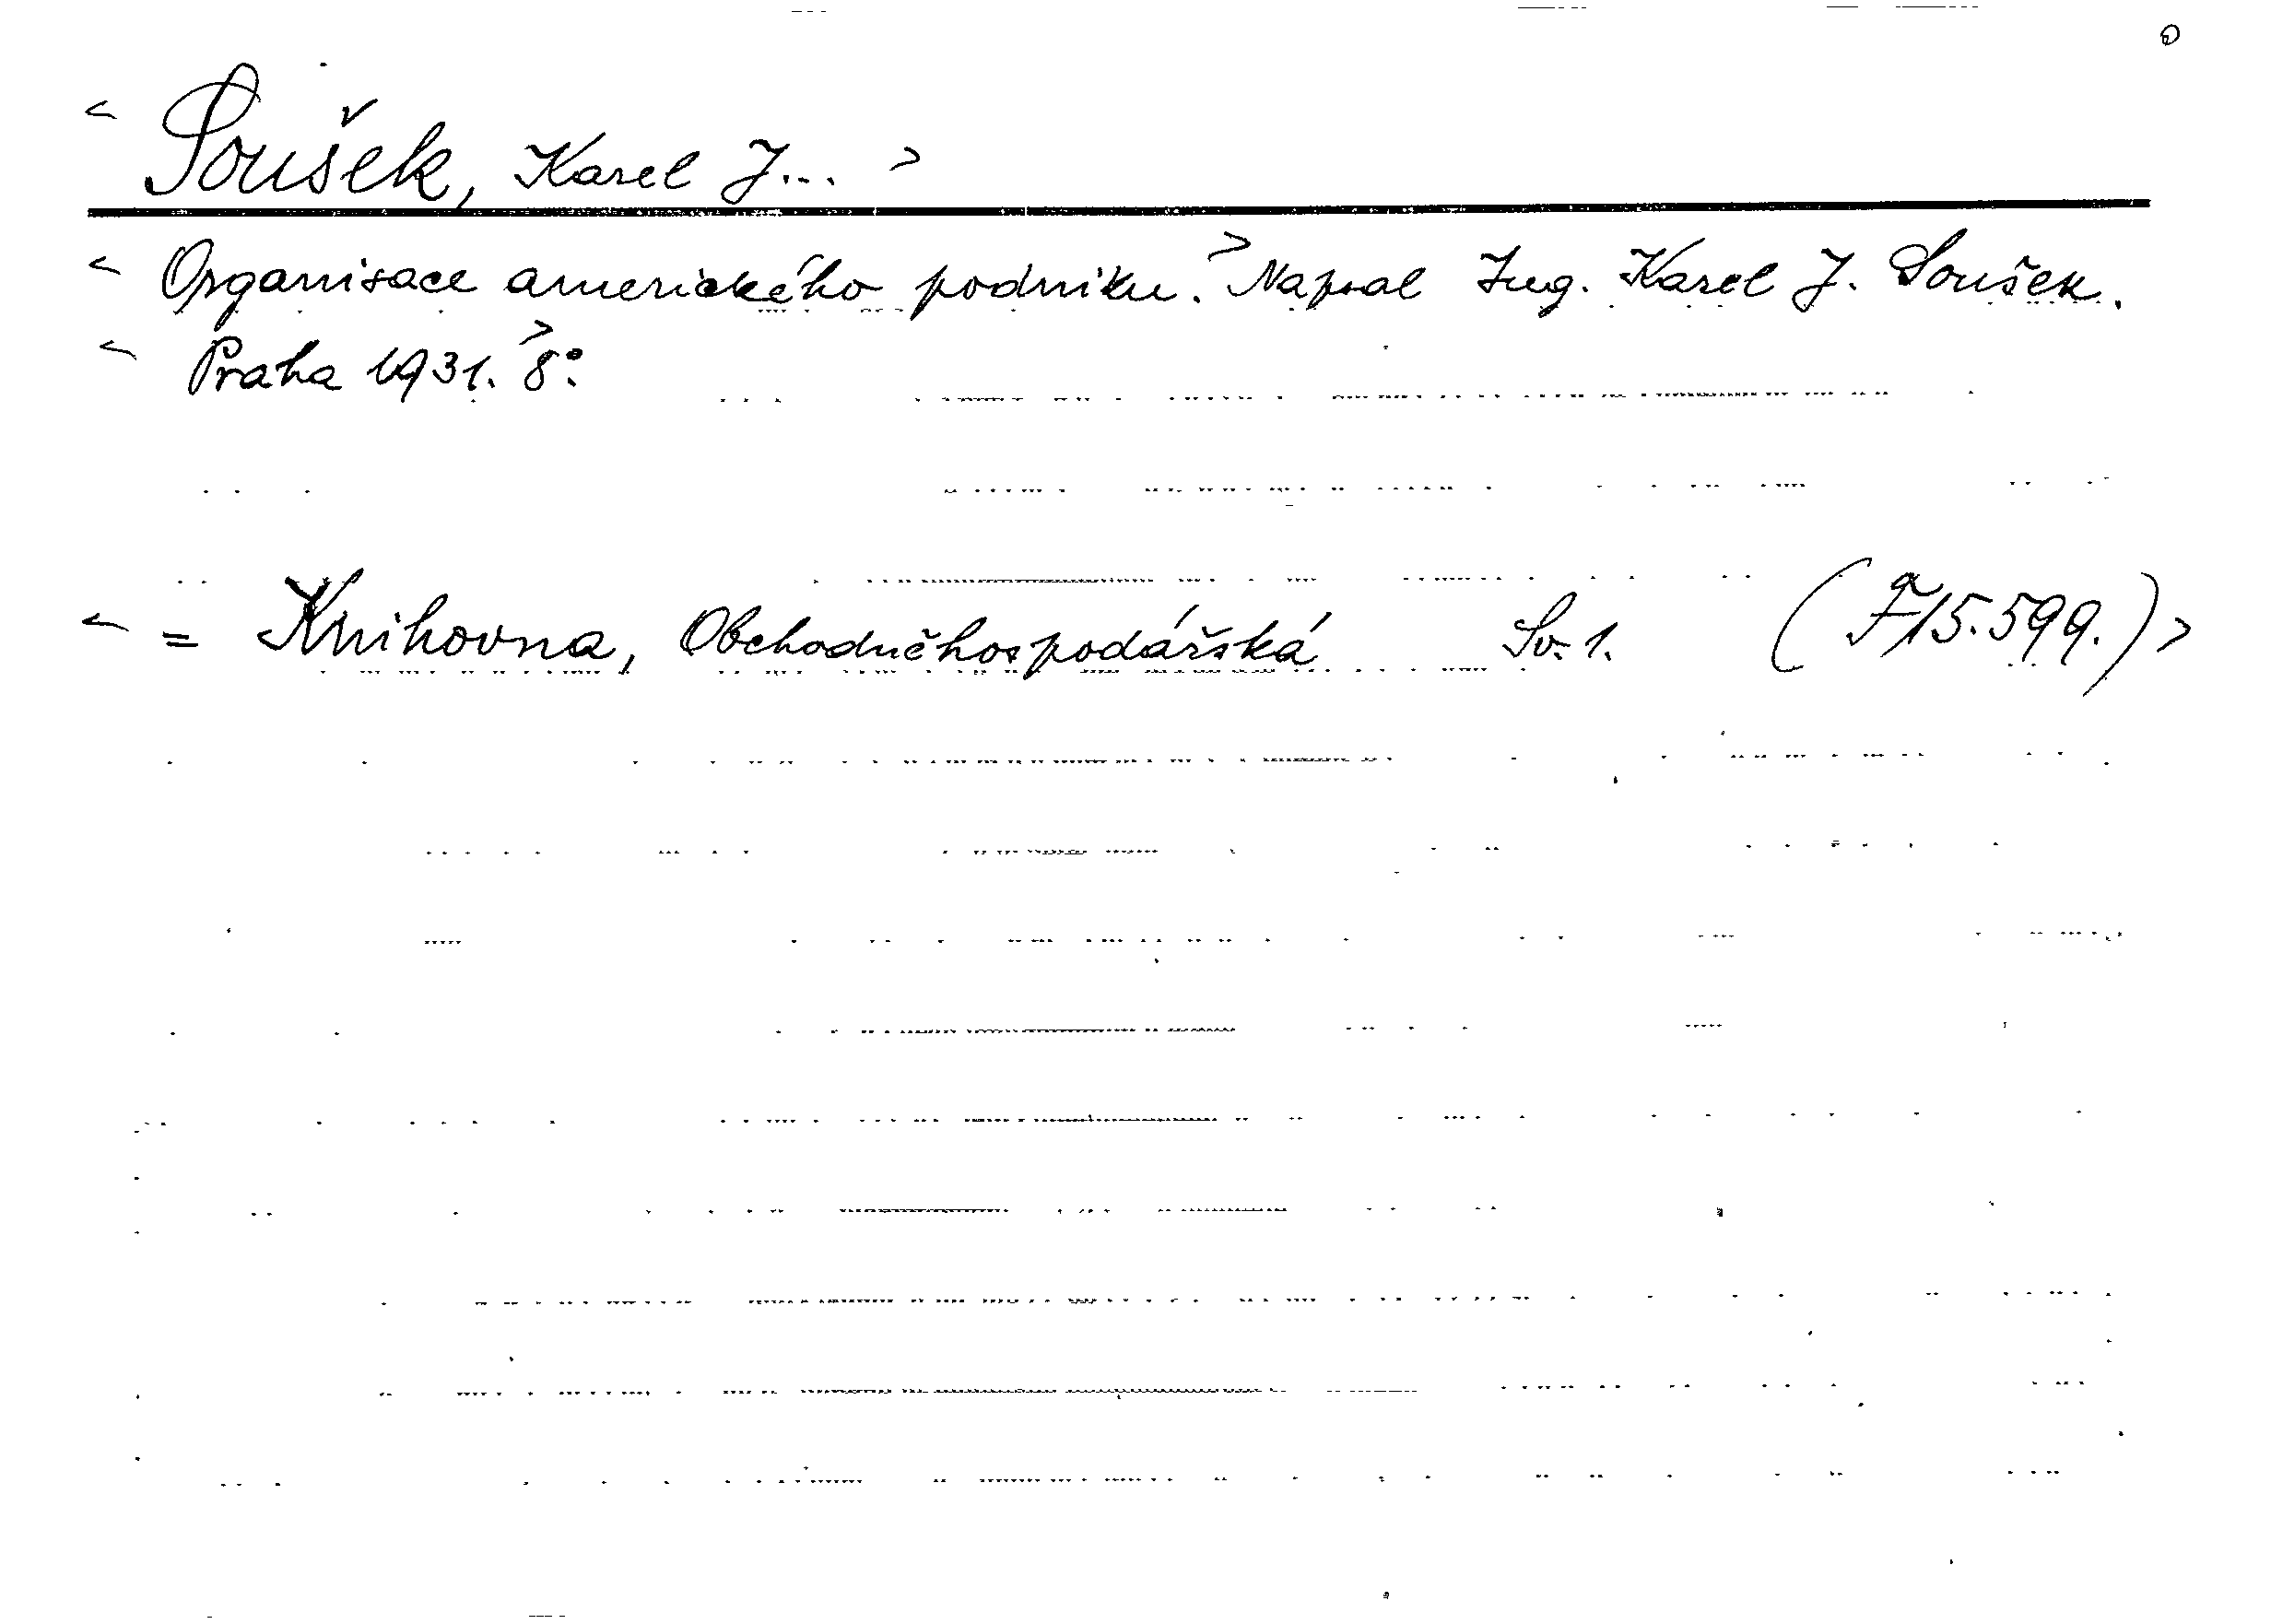 < Soušek, Karel J... >
< Organisace amerického podniku.> Napsal Ing. Karel J. Soušek.
< Praha 1931.> 8°.
< = Knihovna, Obchodněhospodářská Sv. 1. (F 15.599.) >